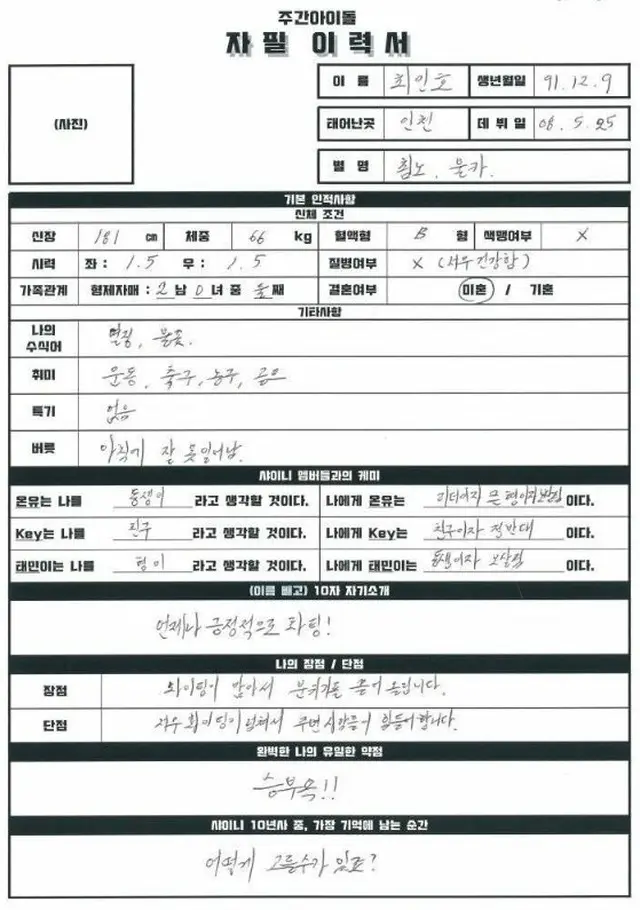 주간아이돌
자필 이력서
(사진)
이 름 최민호 생년월일 91.12.9
태어난곳 인천 데 뷔 일 08.5.25
별 명 침노, 불카.
기본 인적사항
신체 조건
신장 181 cm 체중 66 kg 혈액형 B 형 색맹여부 X
시력 좌 : 1.5 우 : 1.5 질병여부 X (너무 건강함)
가족관계 형제자매 : 2 남 0 녀 중 둘째 결혼여부 미혼 / 기혼
기타사항
나의 수식어 열정, 불꽃.
취미 운동, 축구, 농구,
특기 없음
버릇 아침에 잘 못일어남.
샤이니 멤버들과의 케미
온유는 나를 동생이 라고 생각할 것이다. 나에게 온유는 리더이자 큰 형이자 이다.
Key는 나를 친구 라고 생각할 것이다. 나에게 Key는 친구이자 정반대 이다.
태민이는 나를 형이 라고 생각할 것이다. 나에게 태민이는 동생이자 이다.
(이름 빼고) 10자 자기소개
언제나 긍정적으로 화팅!
나의 장점 / 단점
장점 화이팅이 많아서 분위기를 끌어 올립니다.
단점 너무 화이팅이 넘쳐서 주변 사람들이 힘들어 합니다.
완벽한 나의 유일한 약점
승부욕!!
샤이니 10년사 중, 가장 기억에 남는 순간
어떻게 고를수가 있죠?